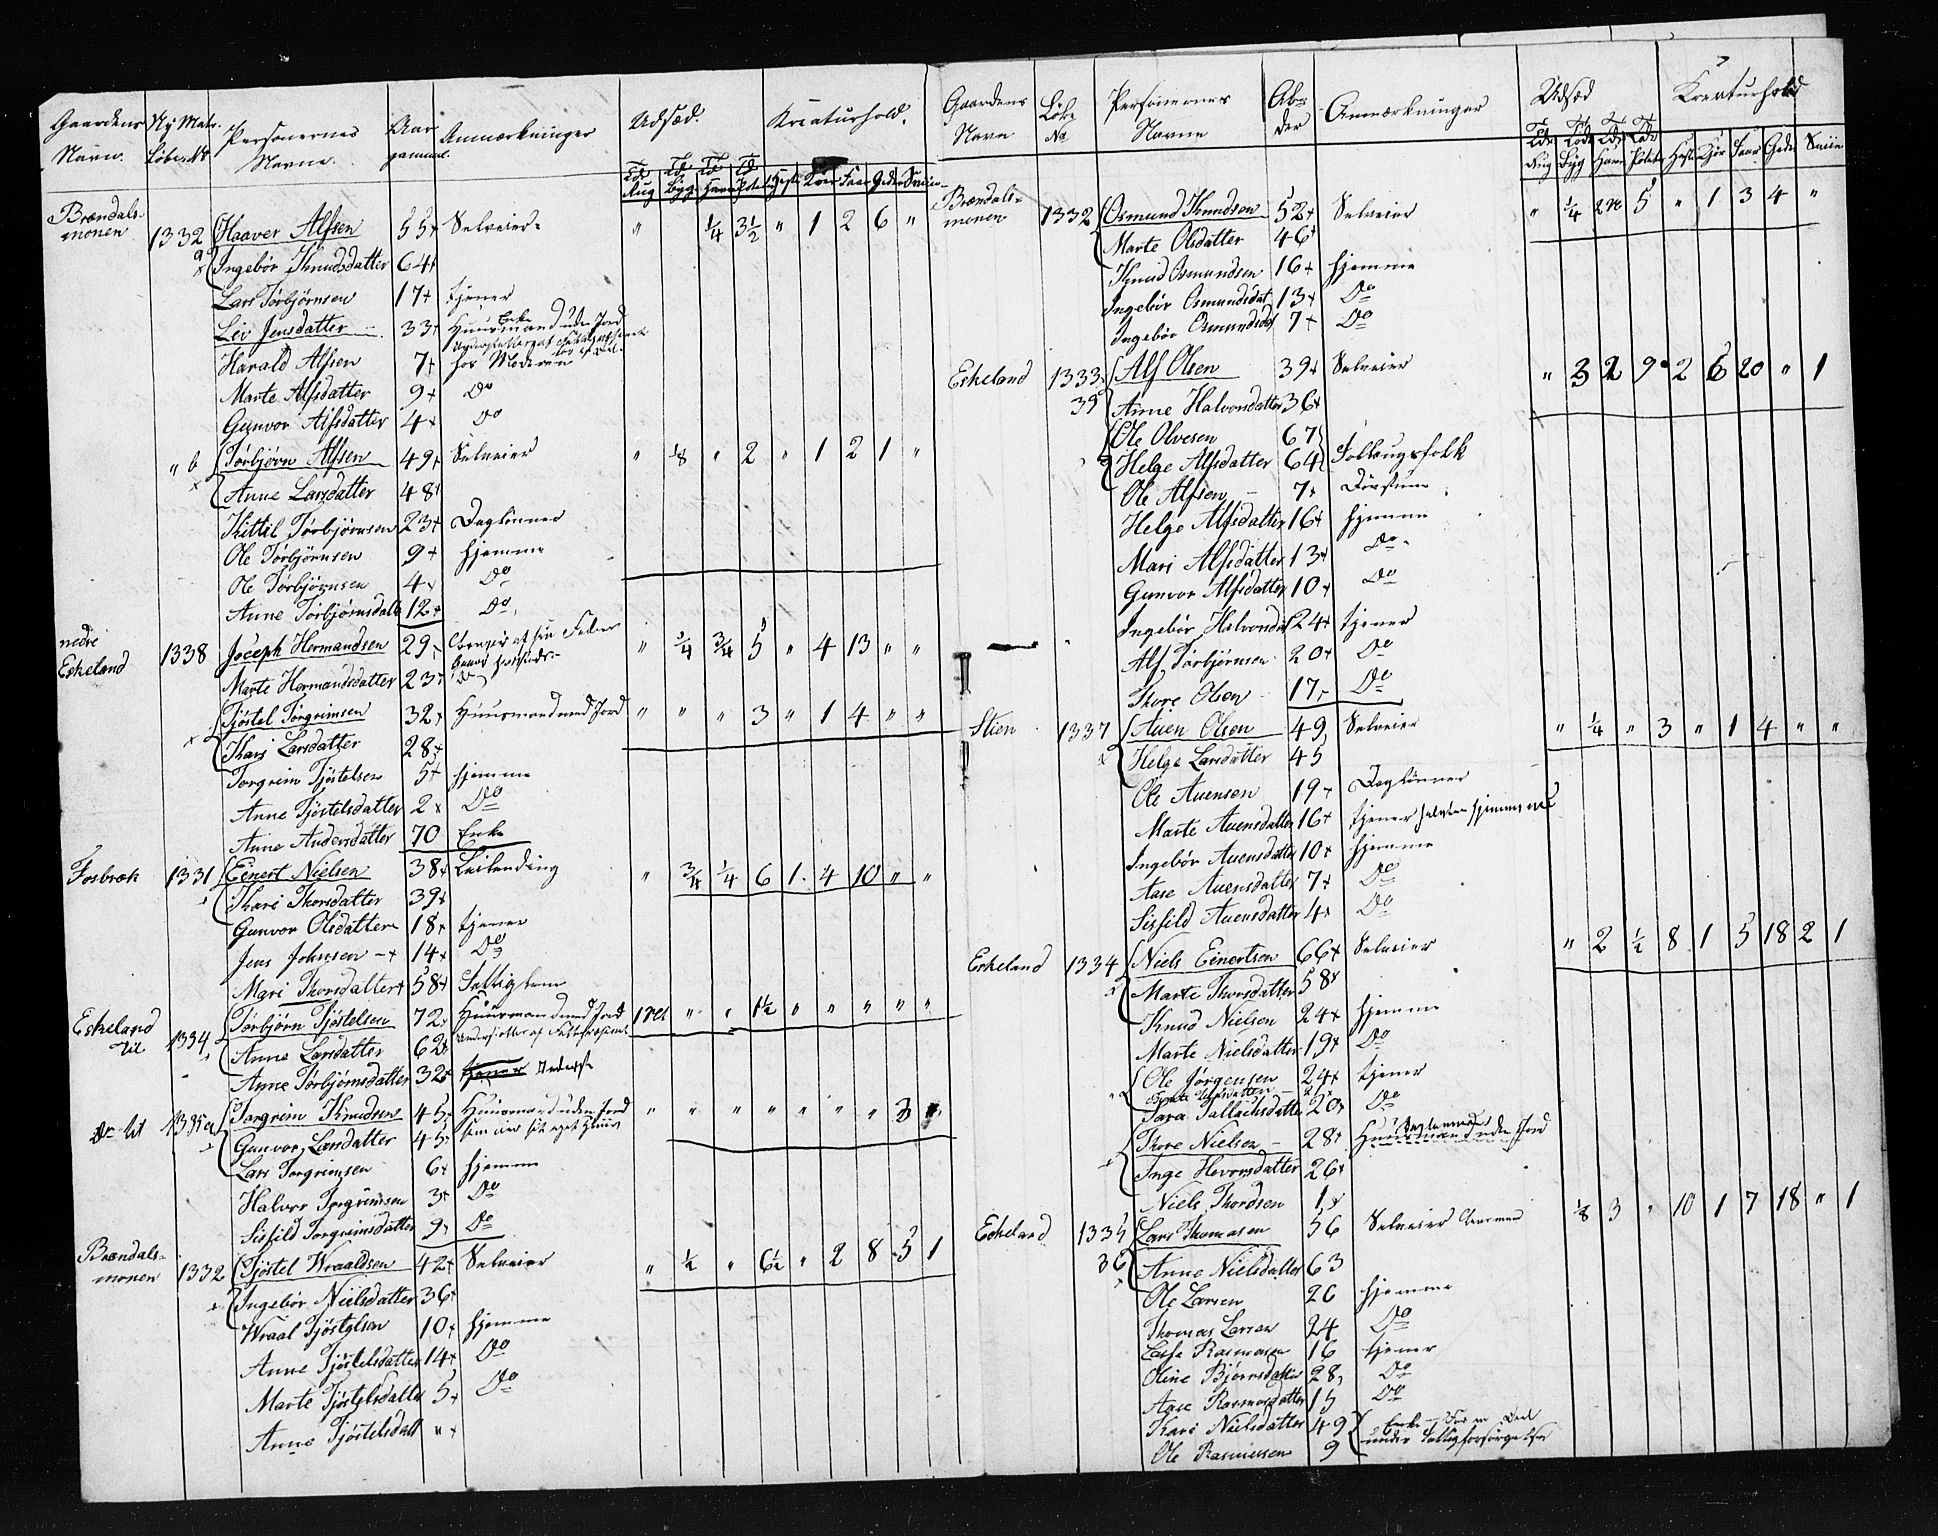 Gaardens Navn. | Ny Matr. Løbe No | Personernes Navne. | Aar gammel. | Anmærkninger | Udsæd. | Kreaturhold.
Tdr Rug | Tdr Byg | Td Havre | Td Potet | Heste | Køer | Faar | Geder | Sviin
Brændals-monen 1332 Haaver Alfsen 55 Selveier " 1/4 3 1/2 " 1 2 6 "
a Ingebør Knudsdatter 64
Lars Torbjørnsen 17 tjener
Liv Jensdatter 33 Enke Huusmand uden Jord
Harald Alfsen 7 hos Moderen
Marte Alfsdatter 9 Do
Gunvor Alfsdatter 4 Do
" b Torbjørn Alfsen 49 Selveier " 1/8 " 2 " 1 2 1 "
Anne Larsdatter 48
Kittil Torbjørnsen 23 Daglønner
Ole Torbjørnsen 9 hjemme
Ole Torbjørnsen 4 Do
Anne Torbjørnsdatt 12 Do
nedre Eskeland 1338 Joceph Hermandsen 29 " 3/4 3/4 5 " 4 13 " "
Marte Hermandsdatter 23
Tjøstel Torgrimsen 32 Huusmand med Jord " " " 3 " 1 4 " "
Kari Larsdatter 28
Torgrim Tjøstelsen 5 hjemme
Anne Tjøstelsdatter 2 Do
Anne Andersdatter 70 Enke
Fosbræk 1331 Einert Nielsen 38 Leilending " 3/4 1/4 6 1 4 10 " "
Kari Thorsdatter 39
Gunvor Olsdatter 18 tjener
Jens Johnsen 14 Do
Mari Thorsdatter 58 Fattiglem
Eskeland Ut 1334 Torbjørn Tjøstelsen 72 Huusmand med Jord " " 1 1/2 " " " " "
Anne Larsdatter 62
Anne Torbjørnsdatter 32 tjener
Do Ut 1335 a Torgrim Knudsen 45 Huusmand uden Jord " " " " " " " 3
Gunvor Larsdatter 45 som har sit eget Huus
Lars Torgrimsen 6 hjemme
Halvor Torgrimsen 3 Do
Sisfild Torgrimsdatter 9 Do
Brændals-monen 1332 Tjøstel Wraaldsen 42 Selveier " 1/2 " 6 1/2 " 2 8 5 1
Ingebør Nielsdatter 36
Wraal Tjøstelsen 10 hjemme
Anne Tjøstelsdatter 14 Do
Marte Tjøstelsdatter 5 Do
Anne Tjøstelsdatt "
Gaardens Navn | Løbe No | Personernes Navne | Alder | Anmærkninger | Udsæd | Kreaturhold
Tdr Rug | Tdr Byg | Tdr Havre | Tdr Potet | Heste | Kjør | Faar | Geder | Sviin
Brændals-monen 1332 Osmund Knudsen 52 Selveier " 1/4 5 " 1 3 4 "
Marte Olsdatter 46
Knud Osmundsen 16 hjemme
Ingebør Osmundsdat 13 Do
Ingebør Osmundsdat 7 Do
Eskeland 1333 Alf Olsen 39 Selveier " 3 2 9 2 6 20 " 1
39 Anne Halvorsdatter 36
Ole Olvesen 67
Helge Alfsdatter 64 Follaugsfolk
Ole Alfsen 7
Helge Alfsdatter 16 hjemme
Mari Alfsdatter 13 Do
Gunvor Alfsdatter 10 Do
Ingebør Halvorsdat 24 tjener
Alf Torbjørnsen 20 Do
Thore Olsen 17 Do
Stien 1337 Auen Olsen 49 Selveier " 1/4 " 3 " 1 4 " "
Helge Larsdatter 45
Ole Auensen 19 Daglønner
Marte Auensdatter 16 tjener
Ingebør Auensdatter 10 hjemme
Aase Auensdatter 7 Do
Sisfild Auensdatter 4 Do
Eskeland 1334 Niels Einertsen 66 Selveier " 2 1/2 8 1 5 18 2 1
Marte Thorsdatter 58
Knud Nielsen 24 hjemme
Marte Nielsdatter 19 Do
Ole Jørgensen 24 tjener
Sara Tallachsdatter 20 Do
Thore Nielsen 28 Huusmand uden Jord
Inge Hevorsdatter 26
Niels Thordsen 1
Eskeland 1335 Lars Thomasen 56 Selveier 1/8 3 " 10 1 7 18 " 1
36 Anne Nielsdatter 63
Ole Larsen 26 hjemme
Thomas Larsen 24 Do
Rasmusen 16 tjener
Oline Bjørnsdatter 28 Do
Aase Rasmusdatter 15 Do
Kari Nielsdatter 49 Enke
Ole Rasmussen 9 under Fattigforsørgelse